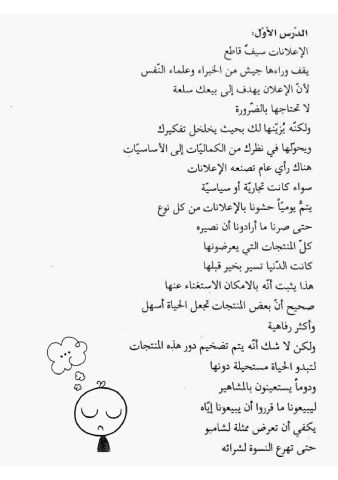 الدّرس الأوّل:
الإعلانات سيفٌ قاطع
يقف وراءها جيش من الخبراء وعلماء النّفس
لأنّ الإعلان يهدف إلى بيعك سلعة
لا تحتاجها بالضّرورة
ولكنّه يُزيّنها لك بحيث يخلخل تفكيرك
ويحوّلها في نظرك من الكماليّات إلى الأساسيّات
هناك رأي عام تصنعه الإعلانات
سواء كانت تجاريّة أو سياسيّة
يتمُّ يوميّاً حشونا بالإعلانات من كل نوع
حتى صرنا ما أرادونا أن نصيره
كلّ المنتجات التي يعرضونها
كانت الدّنيا تسير بخير قبلها
هذا يثبت أنّه بالامكان الاستغناء عنها
صحيح أنّ بعض المنتجات تجعل الحياة أسهل
وأكثر رفاهية
ولكن لا شك أنّه يتم تضخيم دور هذه المنتجات
لتبدو الحياة مستحيلة دونها
ودوماً يستعينون بالمشاهير
ليبيعونا ما قرروا أن يبيعونا إيّاه
يكفي أن تعرض ممثلة لشامبو
حتى تهرع النسوة لشرائه